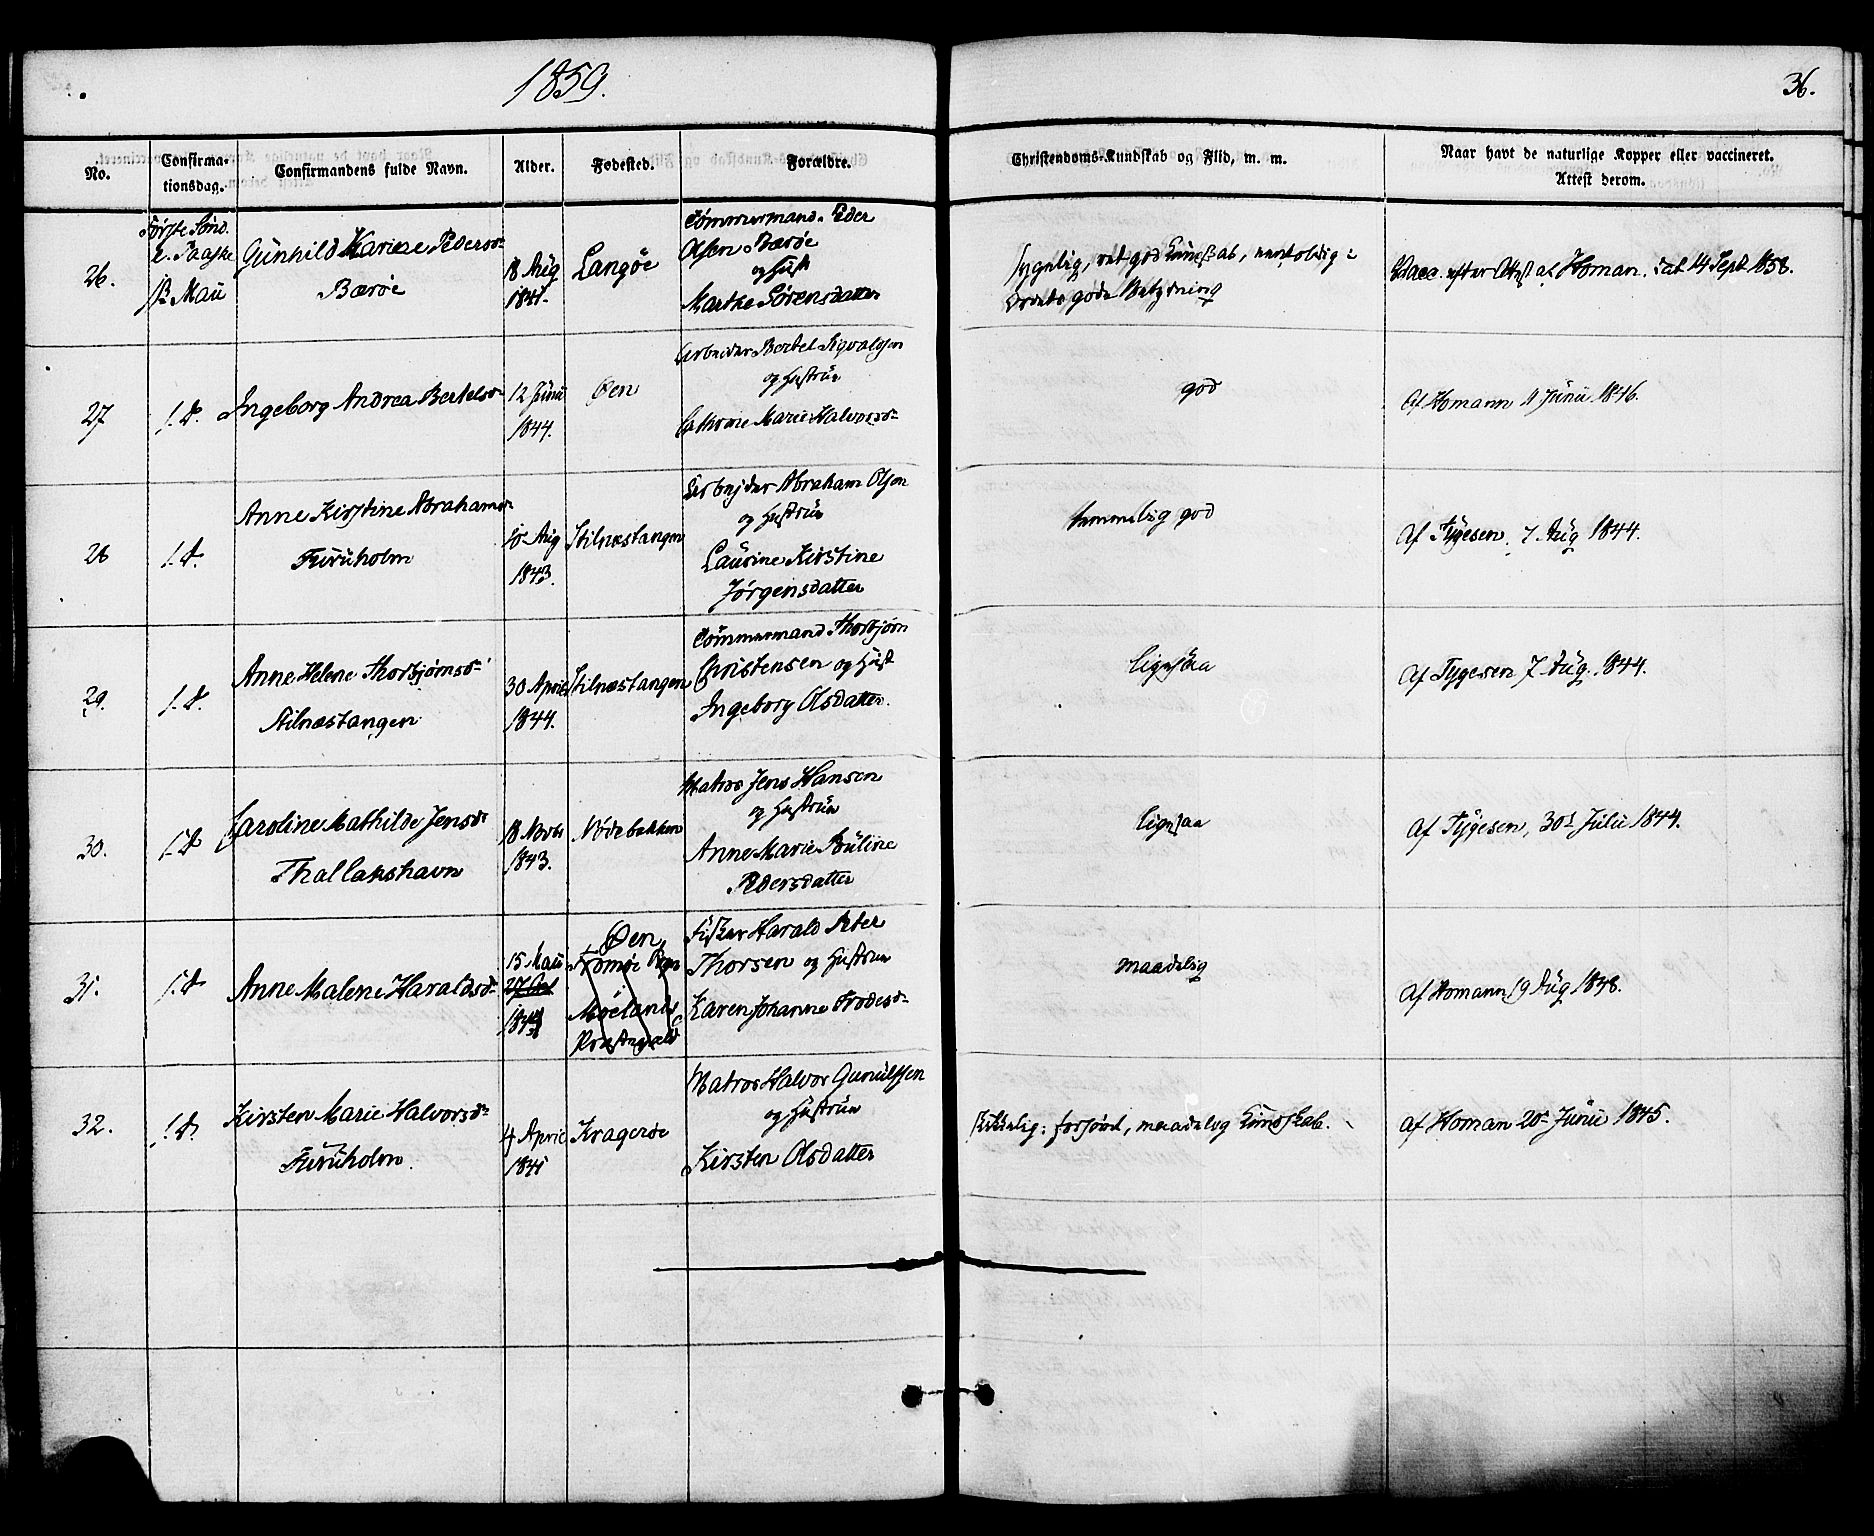 1859.
36.
No.
Confirma-
tionsdag.
Confirmandens fulde Navn.
Alder.
Fødested.
Forældre.
Christendoms-Kundskab og Flid, m. m.
Naar havt de naturlige Kopper eller vaccineret.
Attest derom.
26.
Første Sønd.
e. Paaske
Maii
Gunhild Karine Pedersd
Bærøe
18 Aug
1841.
Langøe
Tømmermand. Peder
Olsen Bærøe
og Hust
Marthe Sørensdatter
sygelig, ret god Kundskab,
Ordets gode Betydning
Vacc. efter Attest af Homan. dat 14 Sept 1858.
27
I. D.
Ingeborg Andrea Bertelsd
12 Junii
1844.
Øen
Arbeider Bertel Sigvalsen
og Hustrue
Cathrine Marie Halvorsd
god
Af Homann 11 Junii 1846.
28
I. D.
Anne Kirstine Abrahamsd
Furuholm
10 Aug
1843.
Stilnæstangen
Arbejder Abraham Olsen
og Hustrue
Laurine Kirstine
Jørgensdatter
temmelig god
Af Tygesen. 7 Aug 1844.
29.
I. D.
Anne Helene Thorbjørnsd
Stilnæstangen
30 April
1844.
Stilnæstangen
Tømmermand Thorbjørn
Christensen og Hust
Ingeborg Olsdatter.
ligesaa
Af Tygesen 7 Aug. 1844.
30.
I. D
Caroline Mathilde Jensd
Thallakshavn
18 Novbr
1843.
Nødebakken
Matros Jens Hansen
og Hustrue
Anne Marie Pauline
Pedersdatter
ligesaa
Af Tygesen, 30t Julii 1844.
31.
I. D
Anne Malene Haraldsd
15 Maii
27 Oct
184
Øen
Tromøe
Moelands
Præstegjeld
Fisker Harald Peter
Thorsen og Hustrue
Karen Johanne Frodesd
maadelig
Af Homann 19 Aug 1848.
32.
I. D.
Kirsten Marie Halvorsd
Furuholm.
4 April
1841
Kragerøe
Matros Halvor Gunulfsen
og Hustrue
Kirsten Olsdatter
maadelig Kundskab.
Af Homan 20 Junii 1845.